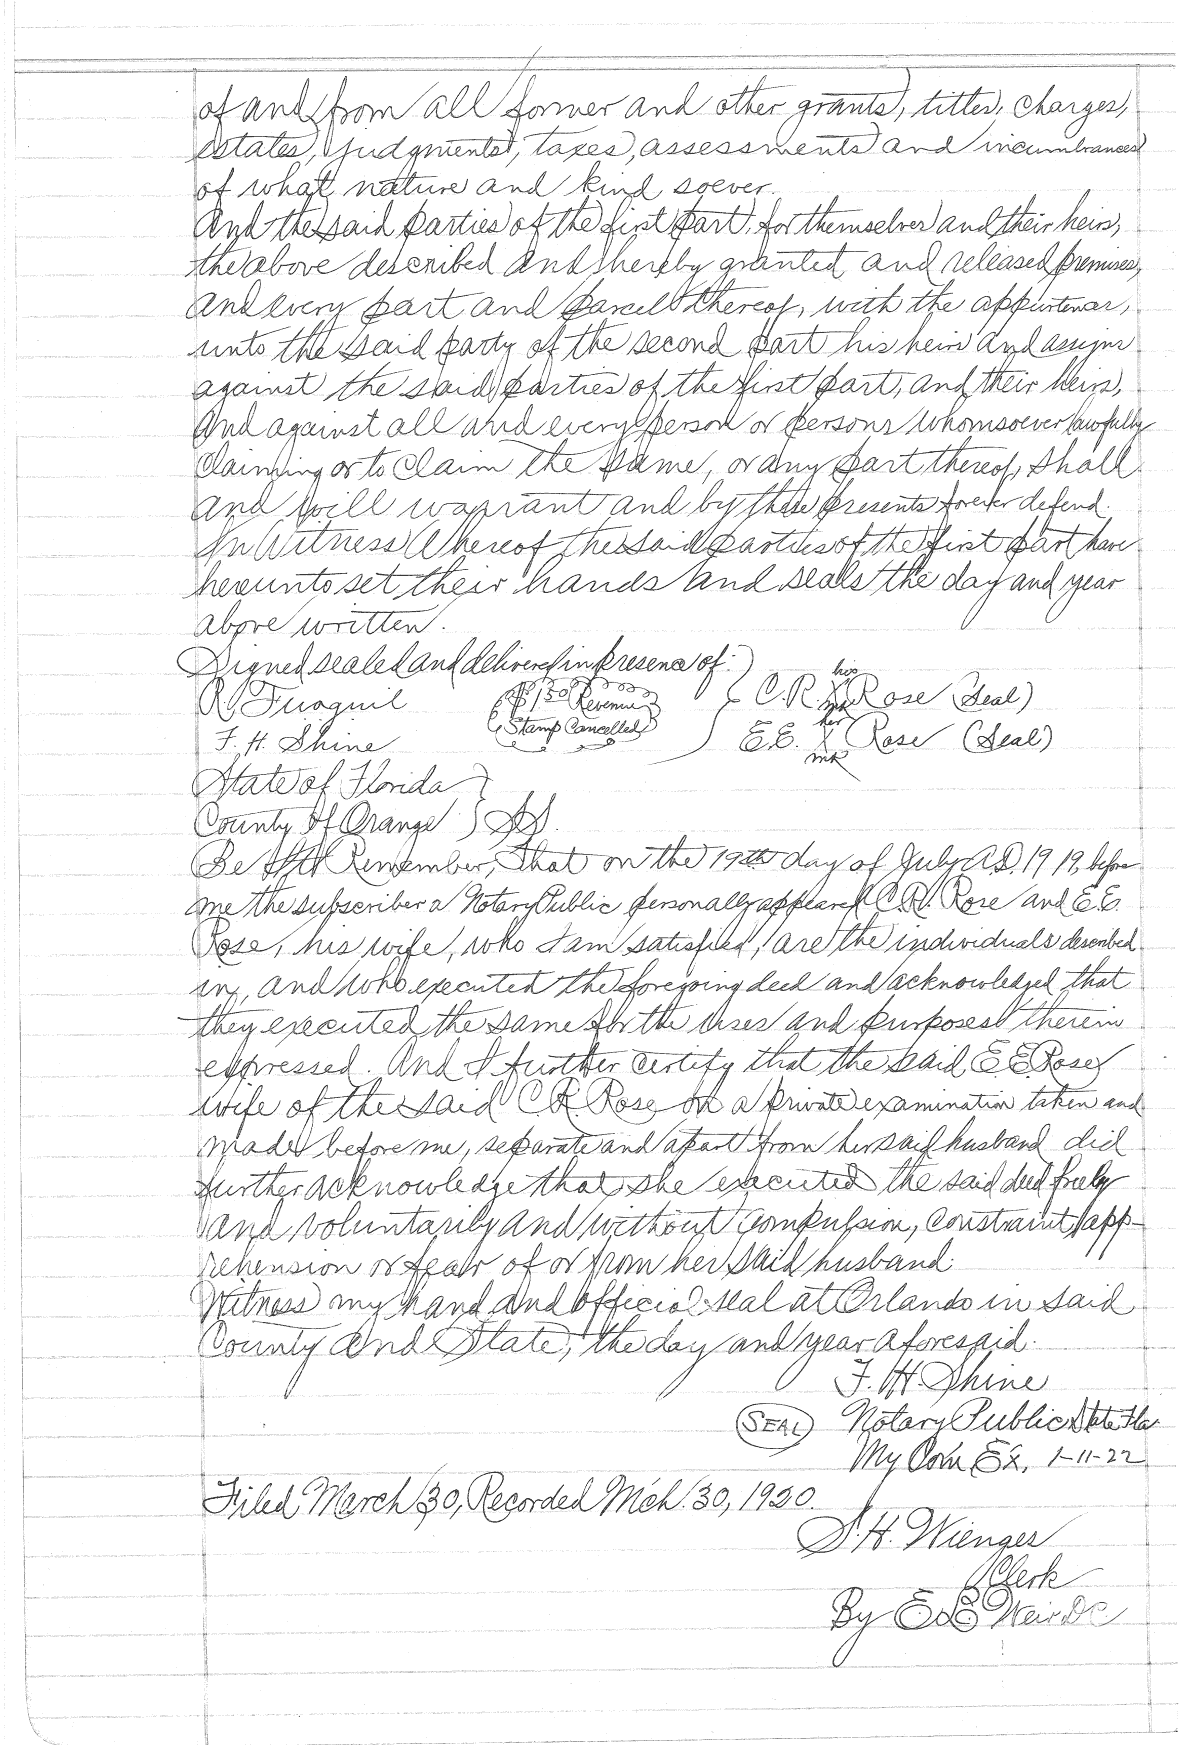 of and from all former and other grants, titles, charges,
estates, judgments, taxes, assessments and incumbrances
of what nature and kind soever.
And the said parties of the first part, for themselves and their heirs,
the above described and hereby granted and released premises,
and every part and parcel thereof, with the appurtenar,
unto the said party of the second part his heirs and assigns
against the said parties of the first part, and their heirs,
And against all and every person or persons whomsoever lawfully
claiming or to claim the same, or any part thereof, shall
and will warrant and by these presents forever defend.
In Witness Whereof the said parties of the first part have
hereunto set their hands and seals the day and year
above written.
Signed sealed and delivered in presence of:
R. Fuaquil $1.50 Revenue C.R. his X mk Rose (Seal)
F. H. Shine Stamp Cancelled E.E. her X mk Rose (Seal)
State of Florida
County Of Orange } SS.
Be It Remember, That on the 19th day of July A.D. 1919, before
me the subscriber a Notary Public personally appeared C.R. Rose and E.E.
Rose, his wife, who I am satisfied, are the individuals described
in, and who executed the foregoing deed and acknowledged that
they executed the same for the uses and purposes therein
expressed. And I further certify that the said E E Rose
wife of the said C R Rose on a private examination taken and
made before me, separate and apart from her said husband did
further acknowledge that she executed the said deed freely
and voluntarily and without compulsion, constraint, app-
rehension or fear of or from her said husband.
Witness my hand and official seal at Orlando in said
County and State, the day and year aforesaid.
F. H. Shine
(SEAL) Notary Public State Fla
My Com Ex, 1-11-22
Filed March 30, Recorded Mch. 30, 1920.
S. H. Wienges
Clerk
By Weir D C